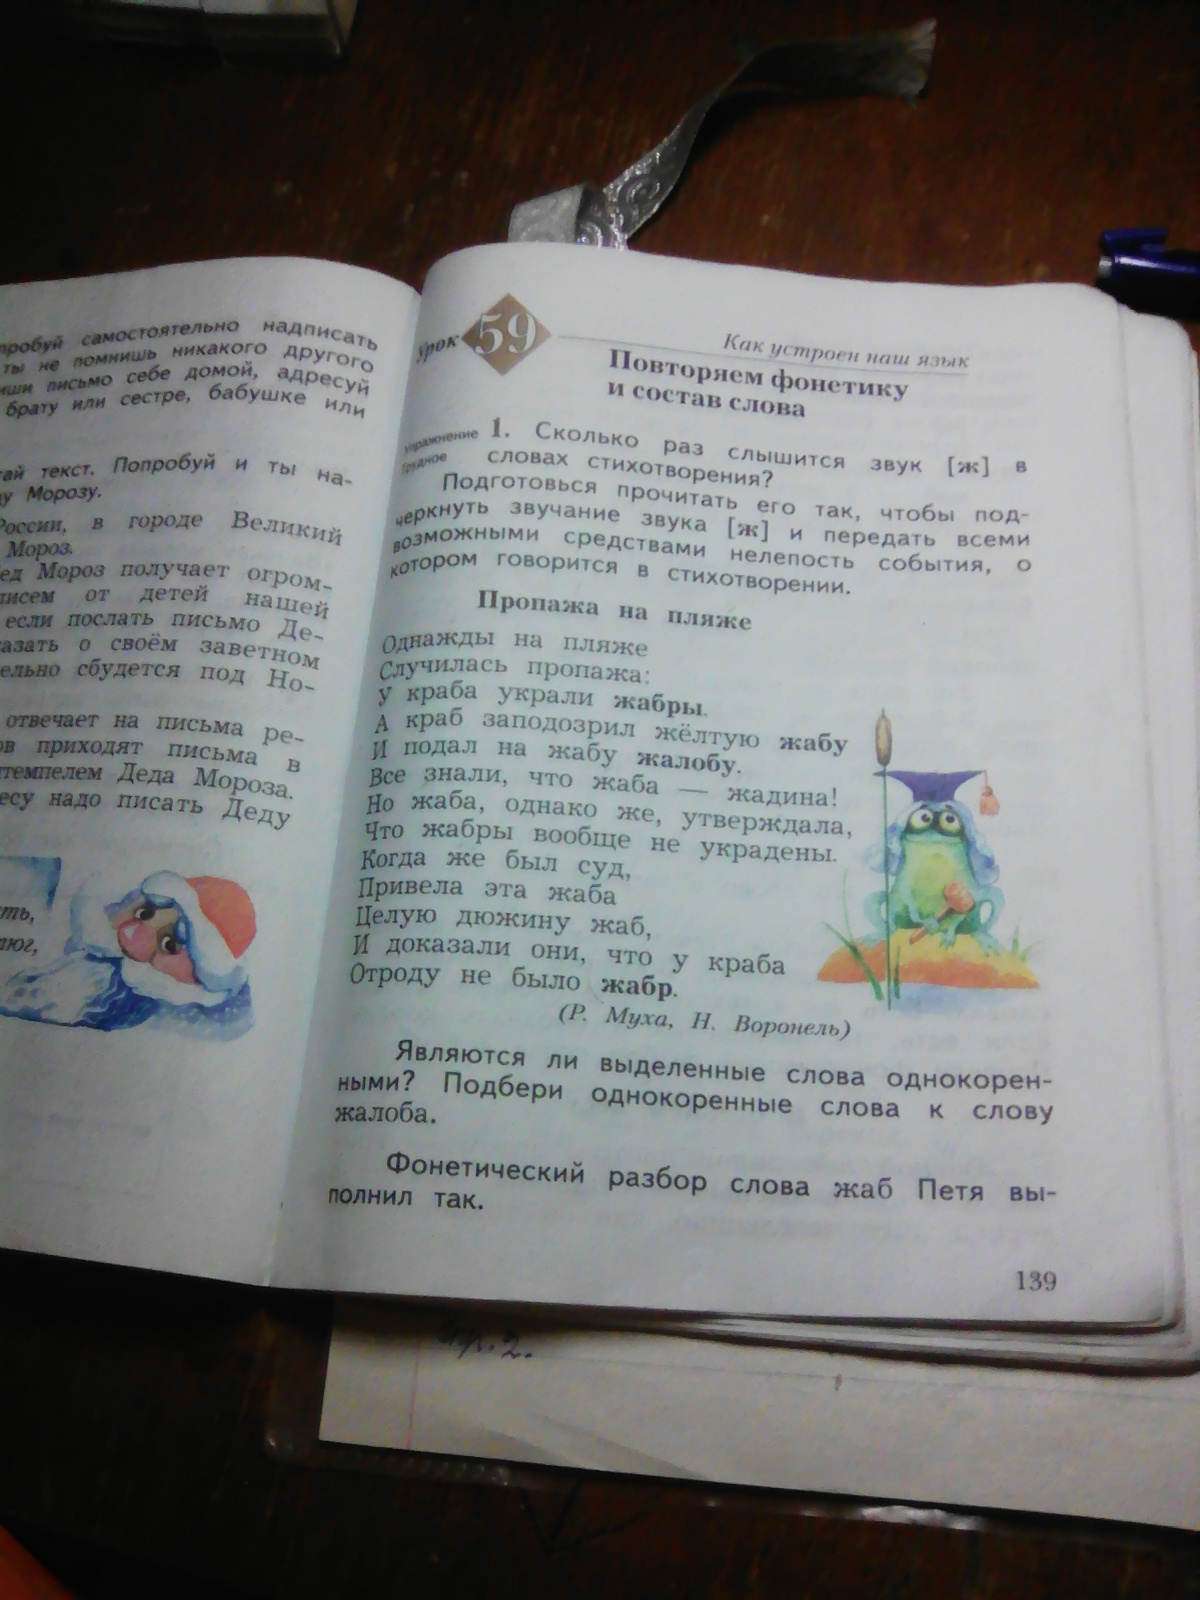 самостоятельно надписать
ты не помнишь никакого другого
письмо себе домой, адресуй
брату или сестре, бабушке или
текст. Попробуй и ты на-
Морозу.
России, в городе Великий
Мороз.
Мороз получает огром-
писем от детей нашей
если послать письмо Де-
о своём заветном
сбудется под Но-
отвечает на письма ре-
приходят письма в
Деда Мороза.
надо писать Деду
Урок 59
Как устроен наш язык
Повторяем фонетику
и состав слова
Упражнение
Трудное
1. Сколько раз слышится звук [ж] в
словах стихотворения?
Подготовься прочитать его так, чтобы под-
черкнуть звучание звука [ж] и передать всеми
возможными средствами нелепость события, о
котором говорится в стихотворении.
Пропажа на пляже
Однажды на пляже
Случилась пропажа:
У краба украли жабры.
А краб заподозрил жёлтую жабу
И подал на жабу жалобу.
Все знали, что жаба — жадина!
Но жаба, однако же, утверждала,
Что жабры вообще не украдены.
Когда же был суд,
Привела эта жаба
Целую дюжину жаб,
И доказали они, что у краба
Отроду не было жабр.
(Р. Муха, Н. Воронель)
Являются ли выделенные слова однокорен-
ными? Подбери однокоренные слова к слову
жалоба.
Фонетический разбор слова жаб Петя вы-
полнил так.
139